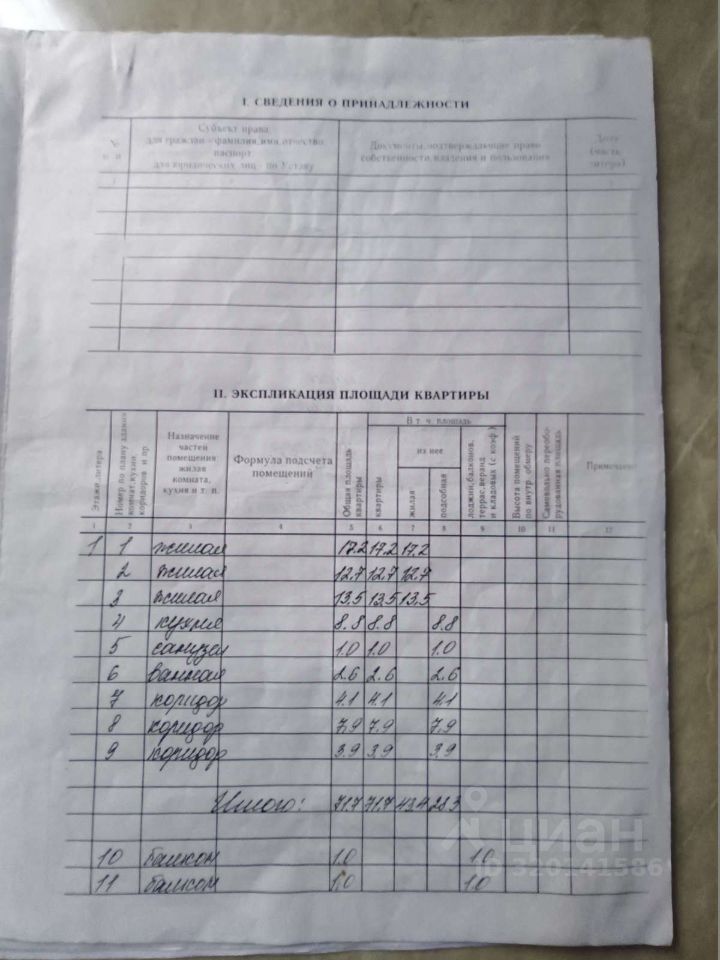 I. СВЕДЕНИЯ О ПРИНАДЛЕЖНОСТИ
Субъект права
для граждан - фамилия, имя, отчество,
паспорт
для юридических лиц - по Уставу
Документы, подтверждающие право
собственности, владения и пользования
Доля
(часть,
литера)
II. ЭКСПЛИКАЦИЯ ПЛОЩАДИ КВАРТИРЫ
Этажи, литера
Номер по плану здания
комнат, кухни,
коридоров и пр
Назначение
частей
помещения
жилая
комната,
кухня и т. п.
Формула подсчета
помещений
Общая площадь
квартиры
В т. ч. площадь
квартиры
из нее
жилая
подсобная
лоджий, балконов,
террас, веранд
и кладовых (с коэф.)
Высота помещений
по внутр. обмеру
Самовольно переобо-
рудованная площадь
Примечание
1 2 3 4 5 6 7 8 9 10 11 12
1 1 жилая 17.2 17.2 17.2
2 жилая 12.7 12.7 12.7
3 жилая 13.5 13.5 13.5
4 кухня 8.8 8.8 8.8
5 санузел 1.0 1.0 1.0
6 ванная 2.6 2.6 2.6
7 коридор 4.1 4.1 4.1
8 коридор 7.9 7.9 7.9
9 коридор 3.9 3.9 3.9
Итого: 71.7 71.7 43.4 28.3
10 балкон 1.0 1.0
11 балкон 1.0 1.0
циан